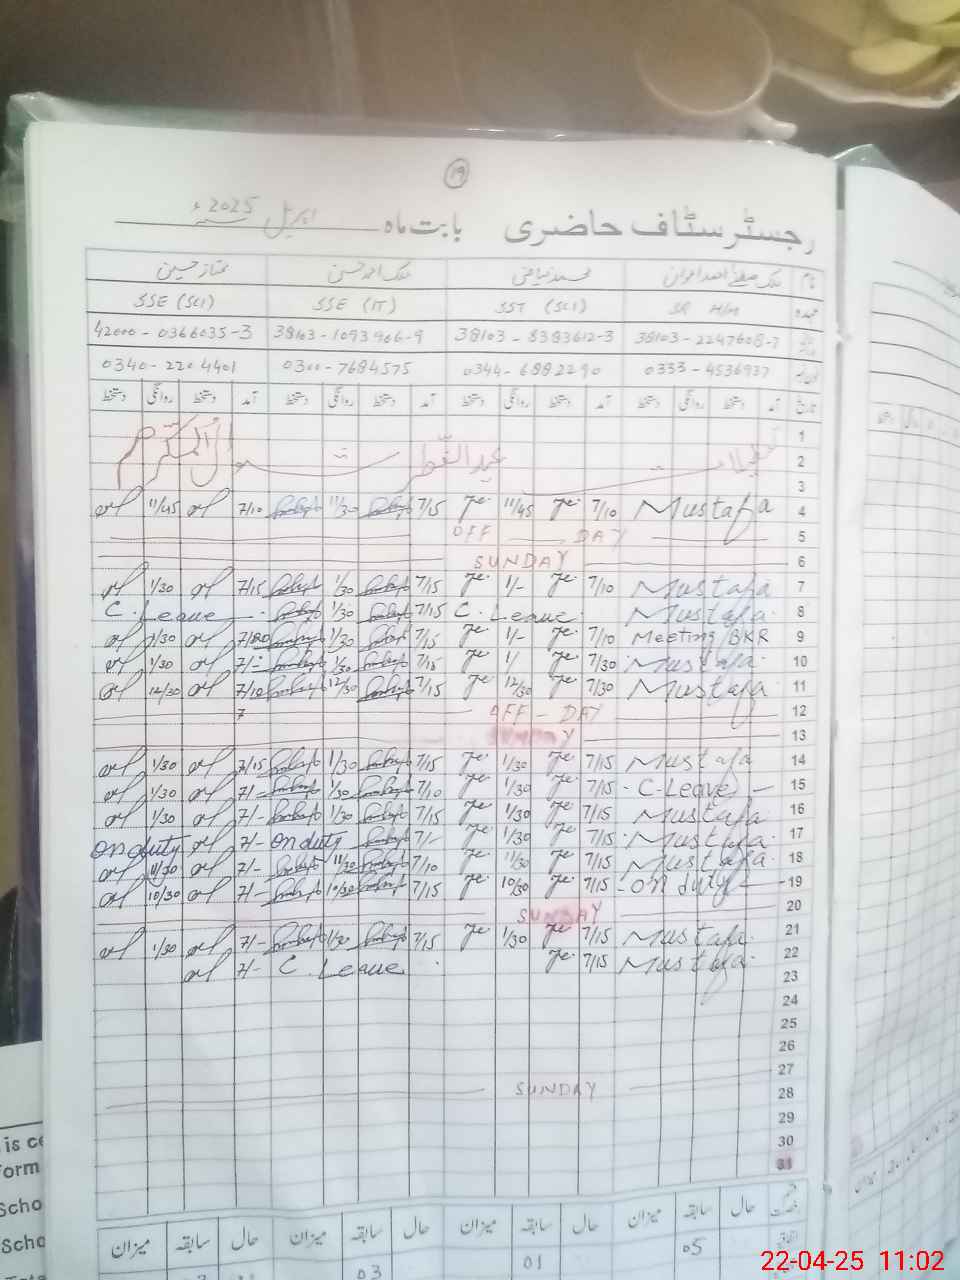 ۱۹
رجسٹر سٹاف حاضری بابت ماہ اپریل 2025ء
نام محمد ریاض ممتاز حسین
عہدہ SR H/M SST (SCI) SSE (IT) SSE (SCI)
38103-2247608-7 38103-8393612-3 38103-1093906-9 42000-0366035-3
0333-4536937 0344-6882290 0300-7684575 0340-2204401
تاریخ آمد دستخط روانگی دستخط آمد دستخط روانگی دستخط آمد دستخط روانگی دستخط آمد دستخط روانگی دستخط
1
2 تعطیلات عید الفطر شوال المکرم
3
4 Mustafa 7/10 11/45 7/15 11/30 7/10 11/45
5 OFF DAY
6 SUNDAY
7 Mustafa 7/10 1/- 7/15 1/30 7/15 1/30
8 Mustafa C. Leave 7/15 1/30 C. Leave
9 Meeting BKR 7/10 1/- 7/15 1/30 1/30
10 Mustafa 7/30 1/ 7/15 1/30 7/- 1/30
11 Mustafa 7/30 12/30 7/15 12/30 7/10 12/30
12 OFF - DAY 7
13 SUNDAY
14 Mustafa 7/15 1/30 7/15 1/30 7/15 1/30
15 C.Leave 7/15 1/30 7/10 1/30 7/- 1/30
16 Mustafa 7/15 1/30 7/15 1/30 7/- 1/30
17 Mustafa 7/15 1/30 7/- on duty 7/- on duty
18 Mustafa 7/15 11/30 7/10 11/30 7/- 11/30
19 on duty 7/15 10/30 7/15 10/30 7/- 10/30
20 SUNDAY
21 Mustafa 7/15 1/30 7/15 1/30 7/- 1/30
22 Mustafa 7/15 C. Leave 7/-
23
24
25
26
27
28 SUNDAY
29
30
31
حال سابقہ میزان حال سابقہ میزان حال سابقہ میزان حال سابقہ میزان
05 01 03
is ce
Form
Scho
Scho
22-04-25 11:02